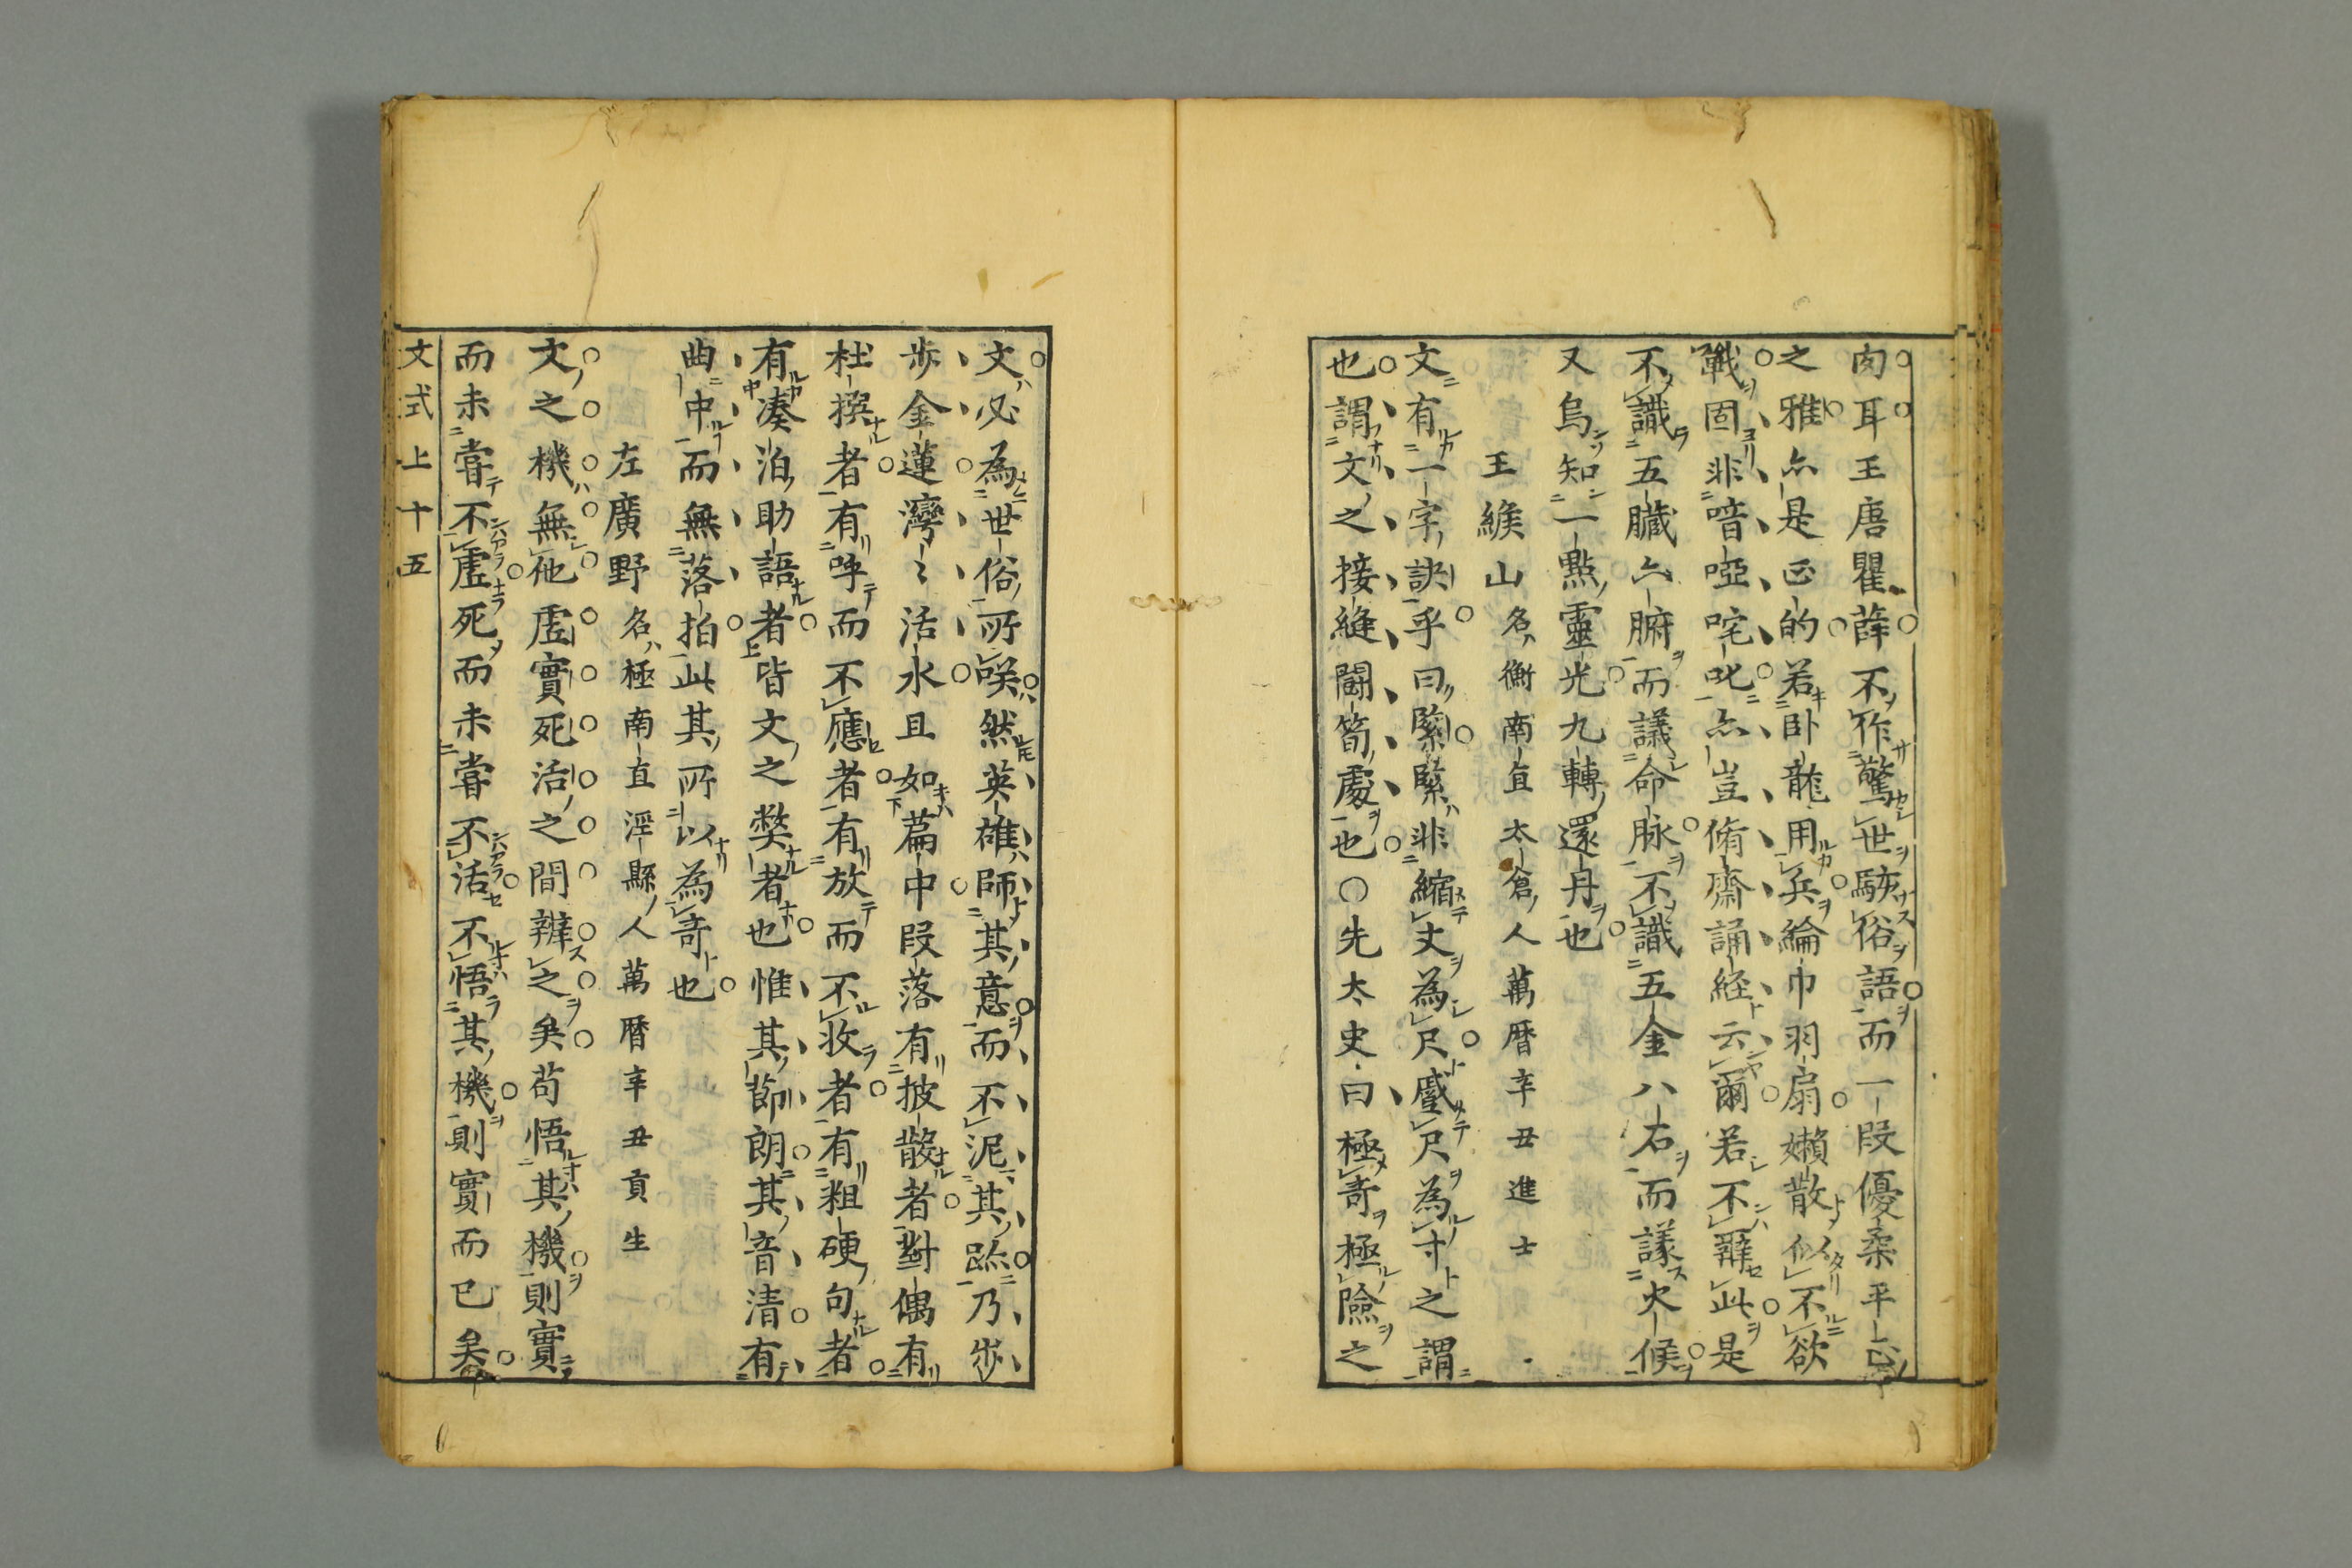 肉耳王唐瞿薛不作驚世駭俗語而一段優柔平正
之雅亦是正的若卧龍用兵綸巾羽扇嬾散似不欲
戰固非喑啞咤叱亦豈脩齋誦経云爾若不辨此是
不識五臓六腑而議命脉不識五金八石而議火候
又烏知一點靈光九轉還丹也
王緱山名衡南直太倉人萬暦辛丑進士
文有一字訣乎曰緊緊非縮丈為尺蹙尺為寸之謂
也謂文之接縫鬪筍處也○先太史曰極奇極險之
文必為世俗所咲然英雄師其意而不泥其跡乃步
步金蓮灣〻活水且如篇中段落有披散者對偶有
杜撰者有呼而不應者有放而不收者有粗硬句者
有湊泊助語者皆文之弊者也惟其節朗其音清有
曲中而無落拍此其所以為奇也
左廣野名極南直涇縣人萬暦辛丑貢生
文之機無他虚實死活之間辨之矣苟悟其機則實
而未嘗不虚死而未嘗不活不悟其機則實而已矣
文式上十五